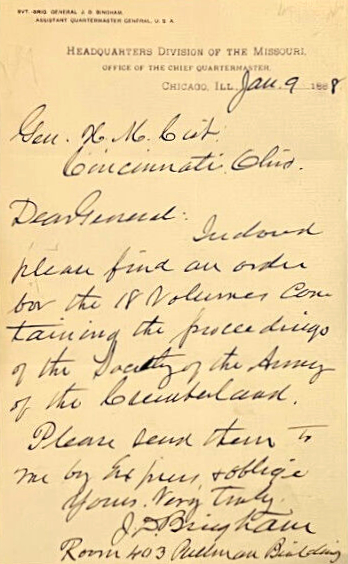 BVT. BRIG. GENERAL J. D. BINGHAM,
ASSISTANT QUARTERMASTER GENERAL, U. S. A.
HEADQUARTERS DIVISION OF THE MISSOURI,
OFFICE OF THE CHIEF QUARTERMASTER,
CHICAGO, ILL. Jan. 9 1888
Gen. H. M. Cist.
Cincinnati Ohio.
Dear General:
Inclosed
please find an order
for the 18 Volumes con
taining the proceedings
of the Society of the Army
of the Cumberland.
Please send them to
me by Express & oblige
Yours Very truly.
J. D. Bingham
Room 403 Pullman Building